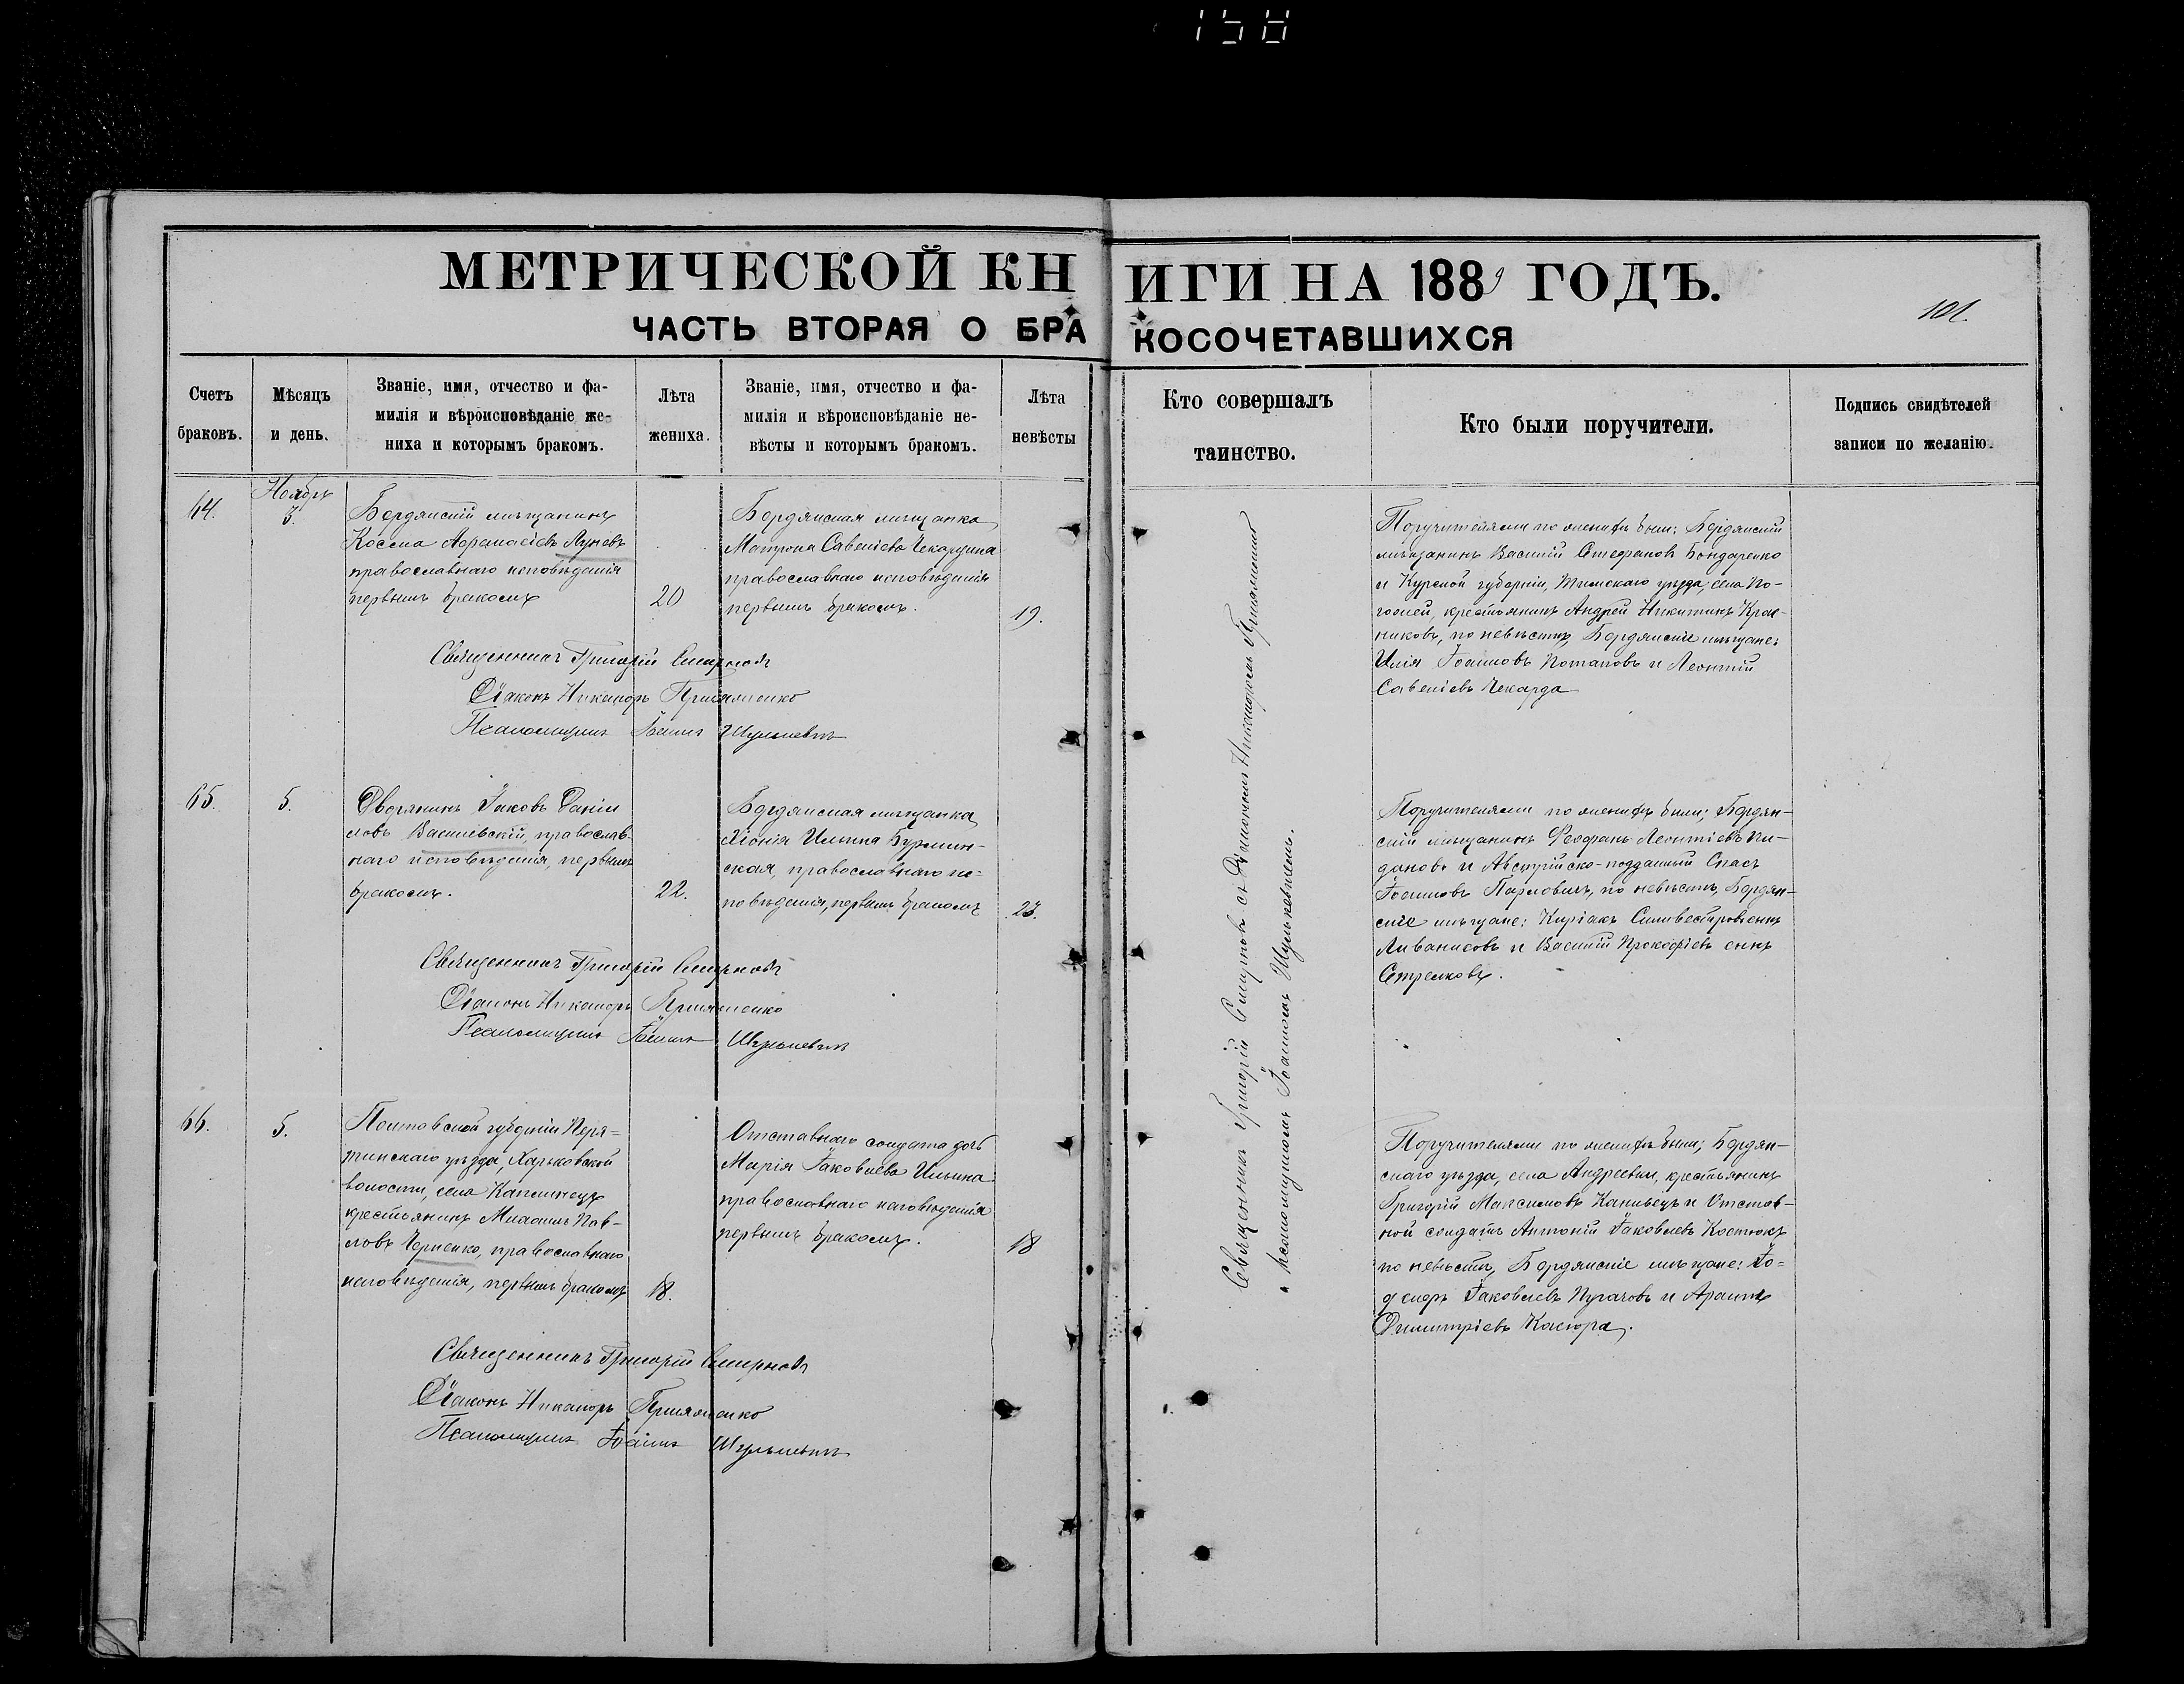 158
МЕТРИЧЕСКОЙ КНИГИ НА 1889 ГОДЪ.
101.
ЧАСТЬ ВТОРАЯ О БРАКОСОЧЕТАВШИХСЯ
Счетъ
браковъ.
Мѣсяцъ
и день.
Званіе, имя, отчество и фа-
милія и вѣроисповѣданіе же-
ниха и которымъ бракомъ.
Лѣта
жениха.
Званіе, имя, отчество и фа-
милія и вѣроисповѣданіе не-
вѣсты и которымъ бракомъ.
Лѣта
невѣсты
Кто совершалъ
таинство.
Кто были поручители.
Подпись свидѣтелей
записи по желанію.
64.
Ноября
3.
Бердянскій мѣщанинъ
Косма Аѳанасіевъ Луневъ
православнаго исповѣданія
первымъ бракомъ
20
Бердянская мѣщанка
Матрона Савеліева Чекардина
православнаго исповѣданія
первымъ бракомъ.
19.
Священникъ Григорій Смирновъ
Діаконъ Никаноръ
Псаломщикъ Іоаннъ Шулькевичъ
Поручителями по женихѣ были: Бердянскій
мѣщанинъ Василій Стефановъ Бондаренко
и Курской губерніи, Тимскаго уѣзда, села По-
крестьянинъ Андрей Никитинъ
по невѣстѣ, Бердянскіе мѣщане:
Илія Іоанновъ Потаповъ и Леонтій
Савеліевъ Чекарда
65.
5.
Дворянинъ Іаковъ Даніи
ловъ Василевскій, православ-
наго исповѣданія, первымъ
бракомъ.
22.
Бердянская мѣщанка
Хіонія Ильина
ская, православнаго ис-
повѣданія, первымъ бракомъ
23.
Священникъ Григорій Смирновъ
Діаконъ Никаноръ
Псаломщикъ Іоаннъ Шулькевичъ
Поручителями по женихѣ были; Бердян-
скій мѣщанинъ Феофанъ Леонтіевъ
и Австрійско-подданный Спасъ
Іоанновъ Павловичъ, по невѣстѣ, Бердян-
скіе мѣщане: Киріакъ Сильвестровъ сынъ
Ливанисовъ и Василій Прокофіевъ сынъ
Стрелковъ.
66.
5.
Полтавской губерніи Пиря-
тинскаго уѣзда, Харьковской
волости, села Каплинецъ
крестьянинъ Михаилъ Пав-
ловъ Черненко, православнаго
исповѣданія, первымъ бракомъ
18.
Отставнаго солдата дочь
Марія Іаковлева Ильина
православнаго исповѣданія
первымъ бракомъ.
18
Священникъ Григорій Смирновъ
Діаконъ Никаноръ
Псаломщикъ Іоаннъ Шулькевичъ
Поручителями по женихѣ были; Бердян-
скаго уѣзда, села Андреевки, крестьянинъ
Григорій Максимовъ Канивецъ и Отстав-
ной солдатъ Антоній Іаковлевъ Костюкъ
по невѣстѣ, Бердянскіе мѣщане:
Іаковлевъ Пугачовъ и
Димитріевъ Касюра.
Священникъ Григорій Смирновъ съ Діакономъ Никаноромъ
и псаломщикомъ Іоанномъ Шулькевичемъ.